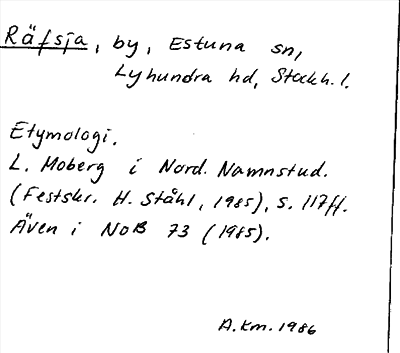 Räfsja, by, Estuna sn,
Lyhundra hd, Stockh. l.
Etymologi.
L. Moberg i Nord. Namnstud.
(Festskr. H. Ståhl, 1985), s. 117ff.
Även i NoB 73 (1985).
A.Km. 1986